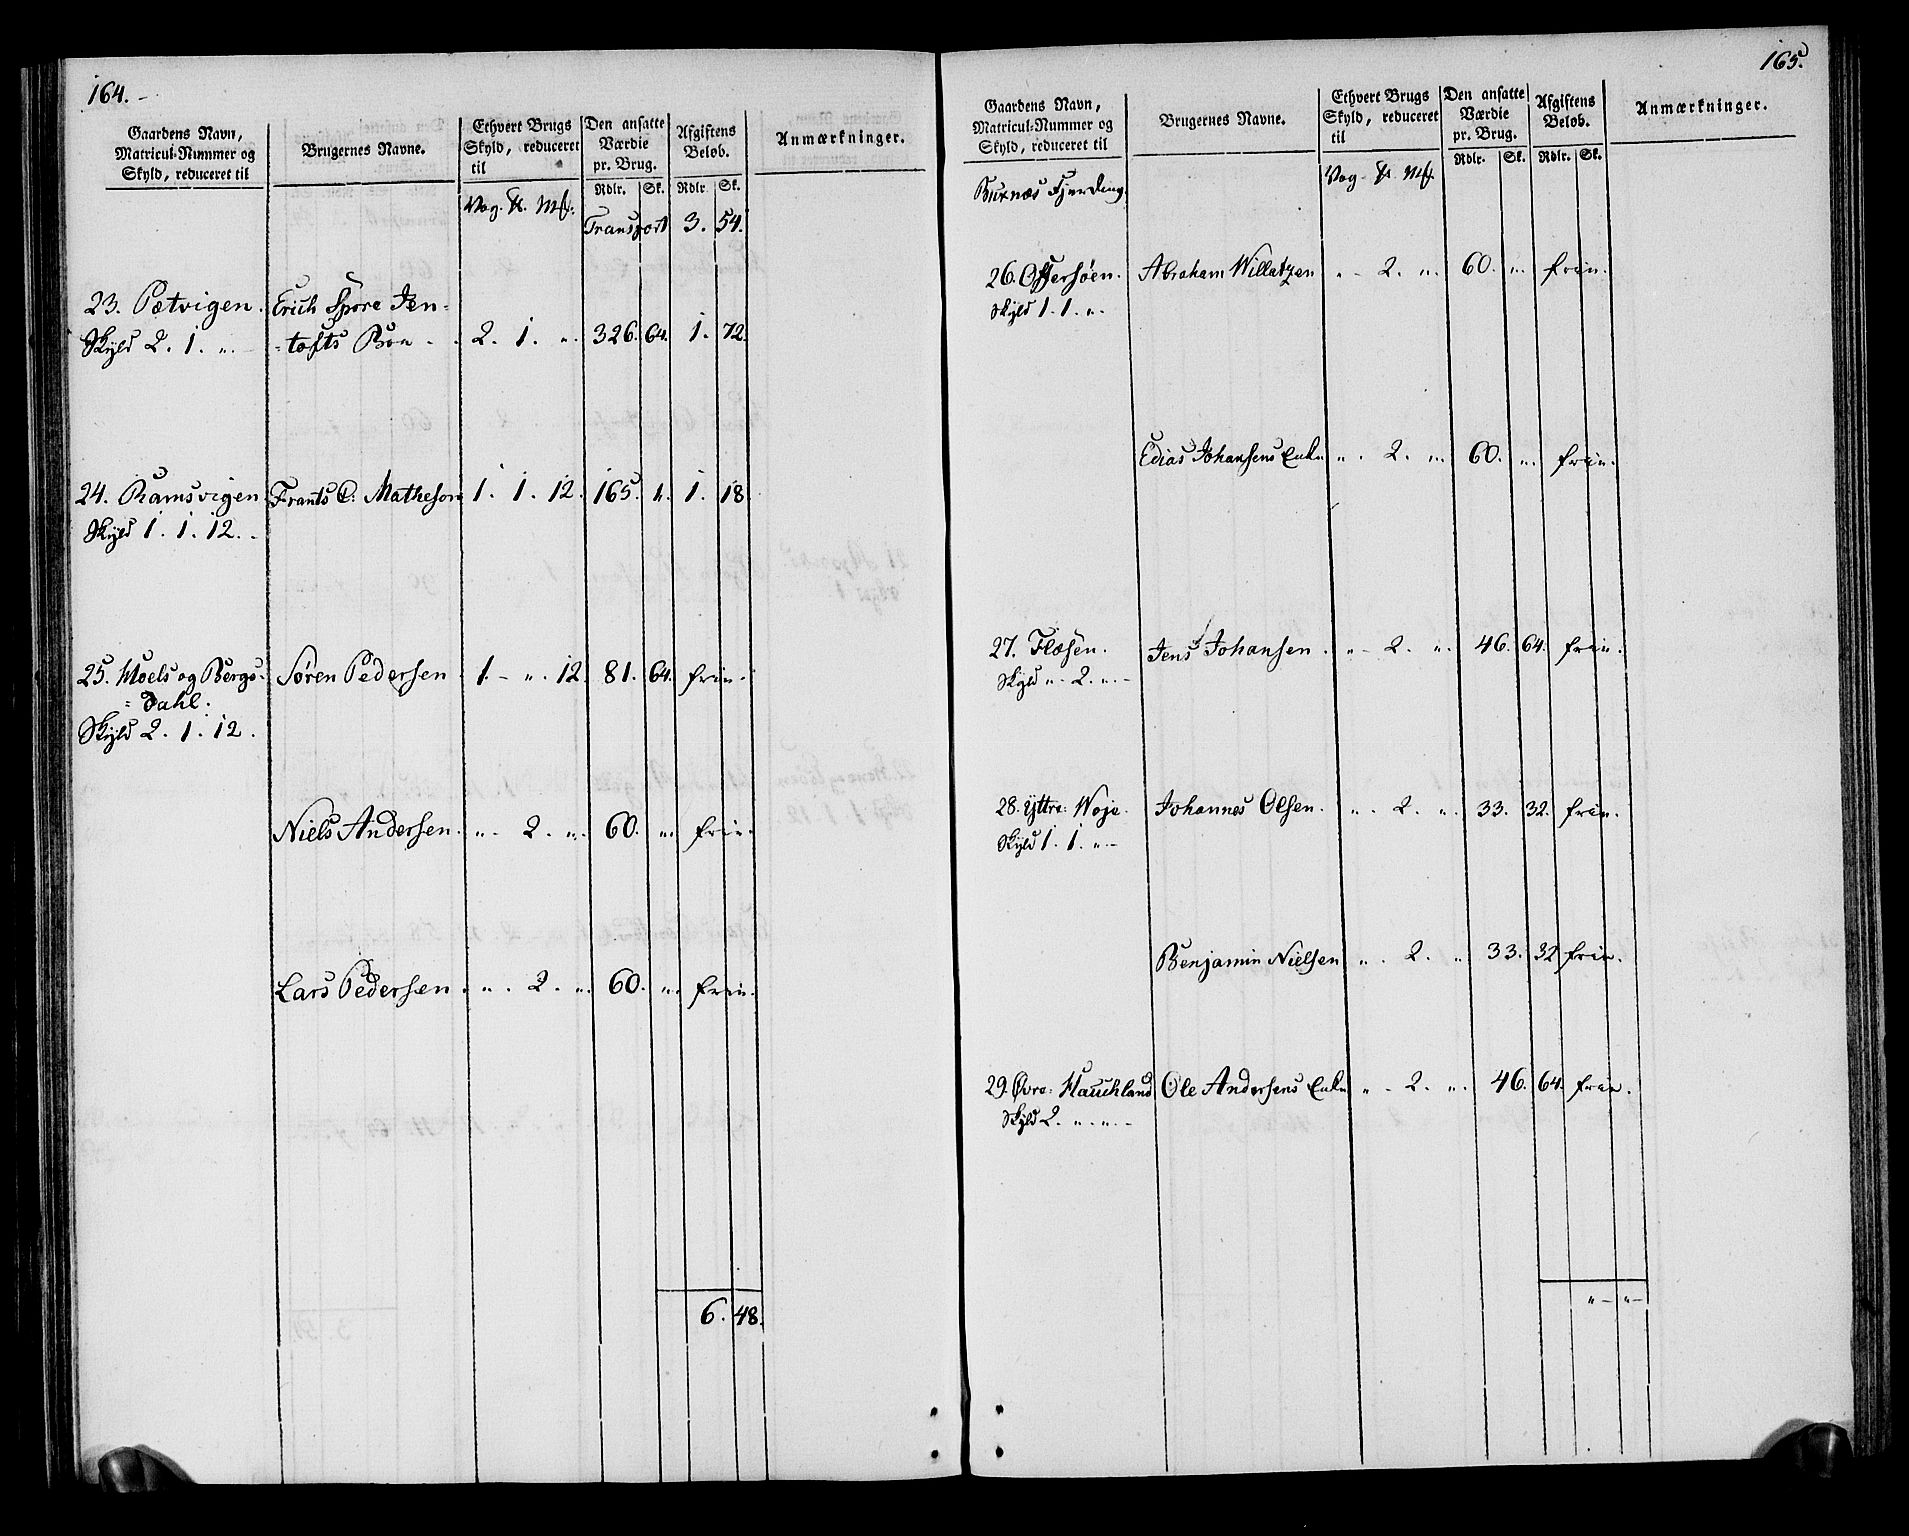 164.
Gaardens Navn, Matricul-Nummer og Skyld, reduceret til
Brugernes Navne.
Ethvert Brugs Skyld, reduceret til
Den ansatte Værdie pr. Brug.
Rdlr. Sk.
Afgiftens Beløb.
Rdlr. Sk.
Anmærkninger.
Vog. ℔. Mk:
Transport 3. 54.
23. Pætvigen. Erich Spore Jen-
Skyld 2. 1. „. - =tofts Boe - . 2. 1. „. 326. 64. 1. 72.
24. Ramsvigen Frants C: Matheson 1. 1. 12. 165. „. 1. 18
Skyld 1. 1. 12. -
25. Moels og Bergs- Søren Pedersen 1. - „. 12. 81. 64. frie.
=dahl.
Skyld 2. 1. 12.
Niels Andersen. „. 2. „. 60. „. frie.
Lars Pedersen. „. 2. „. 60. „. frie.
6. 48.
165.
Gaardens Navn, Matricul-Nummer og Skyld, reduceret til
Brugernes Navne.
Ethvert Brugs Skyld, reduceret til
Den ansatte Værdie pr. Brug.
Rdlr. Sk.
Afgiftens Beløb.
Rdlr. Sk.
Anmærkninger.
Buxnæs Fjerding.
Vog. ℔. Mk.
26. Offersøen. Abraham Willatzen „ - 2. „. 60. „. frie.
Skyld 1. 1. „.
Edias Johansens Enke „. 2. „. 60. „. frie.
27. Flæsen. Jens Johansen. „ - 2. „. 46. 64. frie.
Skyld „ - 2. „. -
28. Yttre: Woje. Johannes Olsen. „. 2. „. 33. 32. frie.
Skyld 1. 1. „. -
Benjamin Nielsen „. 2. „ 33. 32 frie.
29. Øvre: Hauchland Ole Andersens Enke „ - 2. „. 46. 64. frie.
Skyld 2. „. „. -
„ - „ -